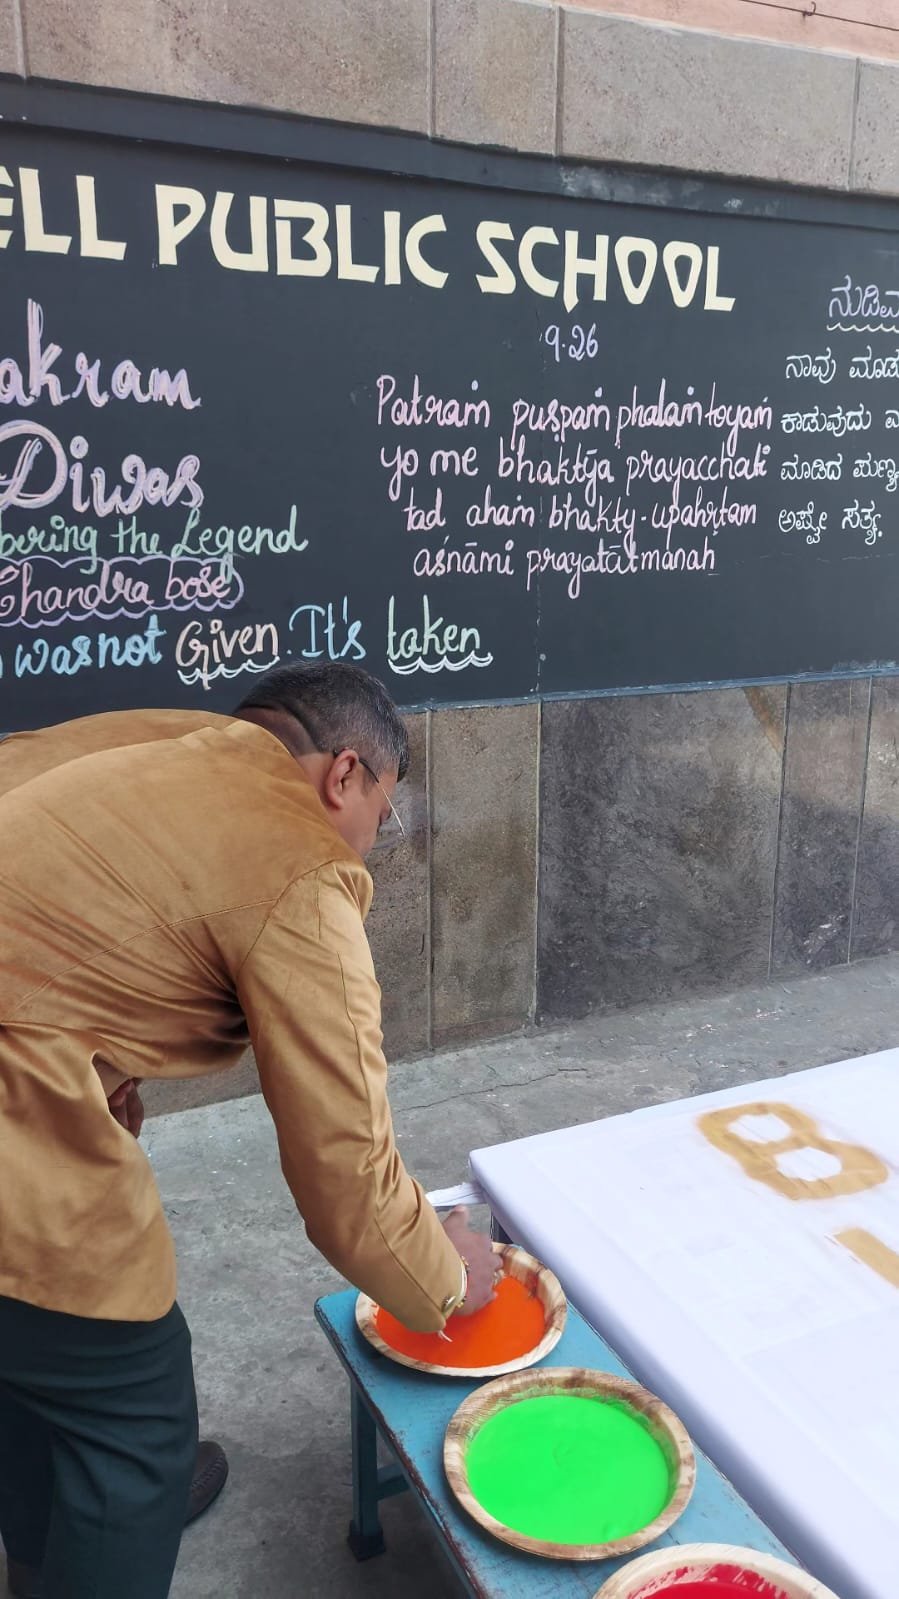 ELL PUBLIC SCHOOL
akram
Diwas
bering the Legend
Chandra bose
was not Given. It's taken
9.26
Patraṁ puṣpaṁ phalaṁ toyaṁ
yo me bhaktya prayacchati
tad ahaṁ bhakty-upahṛtam
aśnāmi prayatātmanaḥ
ನುಡಿಮ
ನಾವು ಮಾಡು
ಕಾಡುವುದು
ಮಾಡಿದ ಪುಣ್ಯ
ಅಷ್ಟೇ ಸತ್ಯ.
8